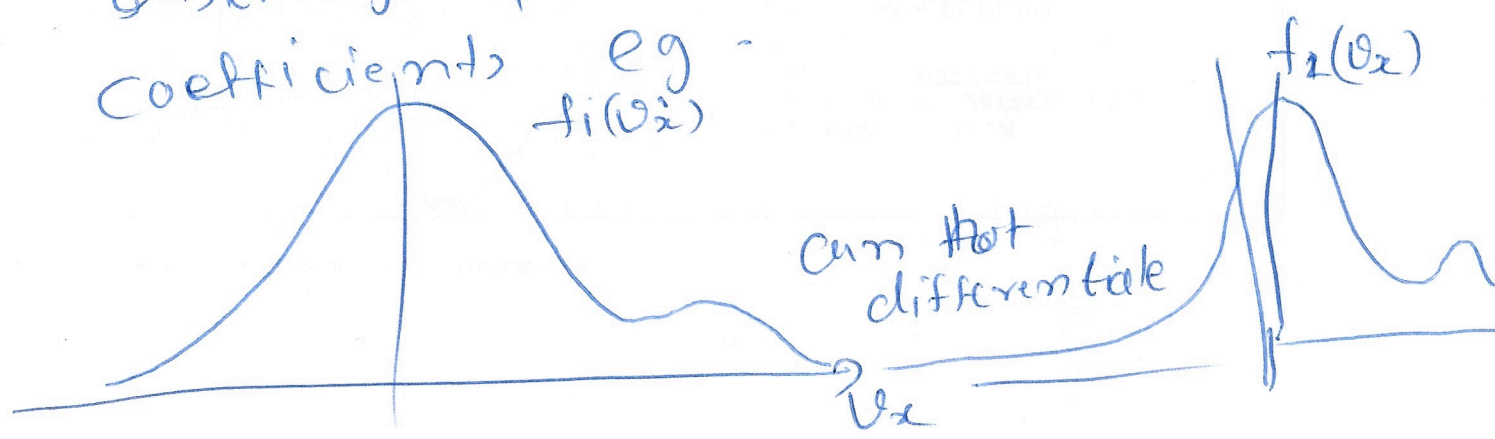 coefficients eg -
f₁(v_x)
f₂(v_x)
can not
differentiale
v_x